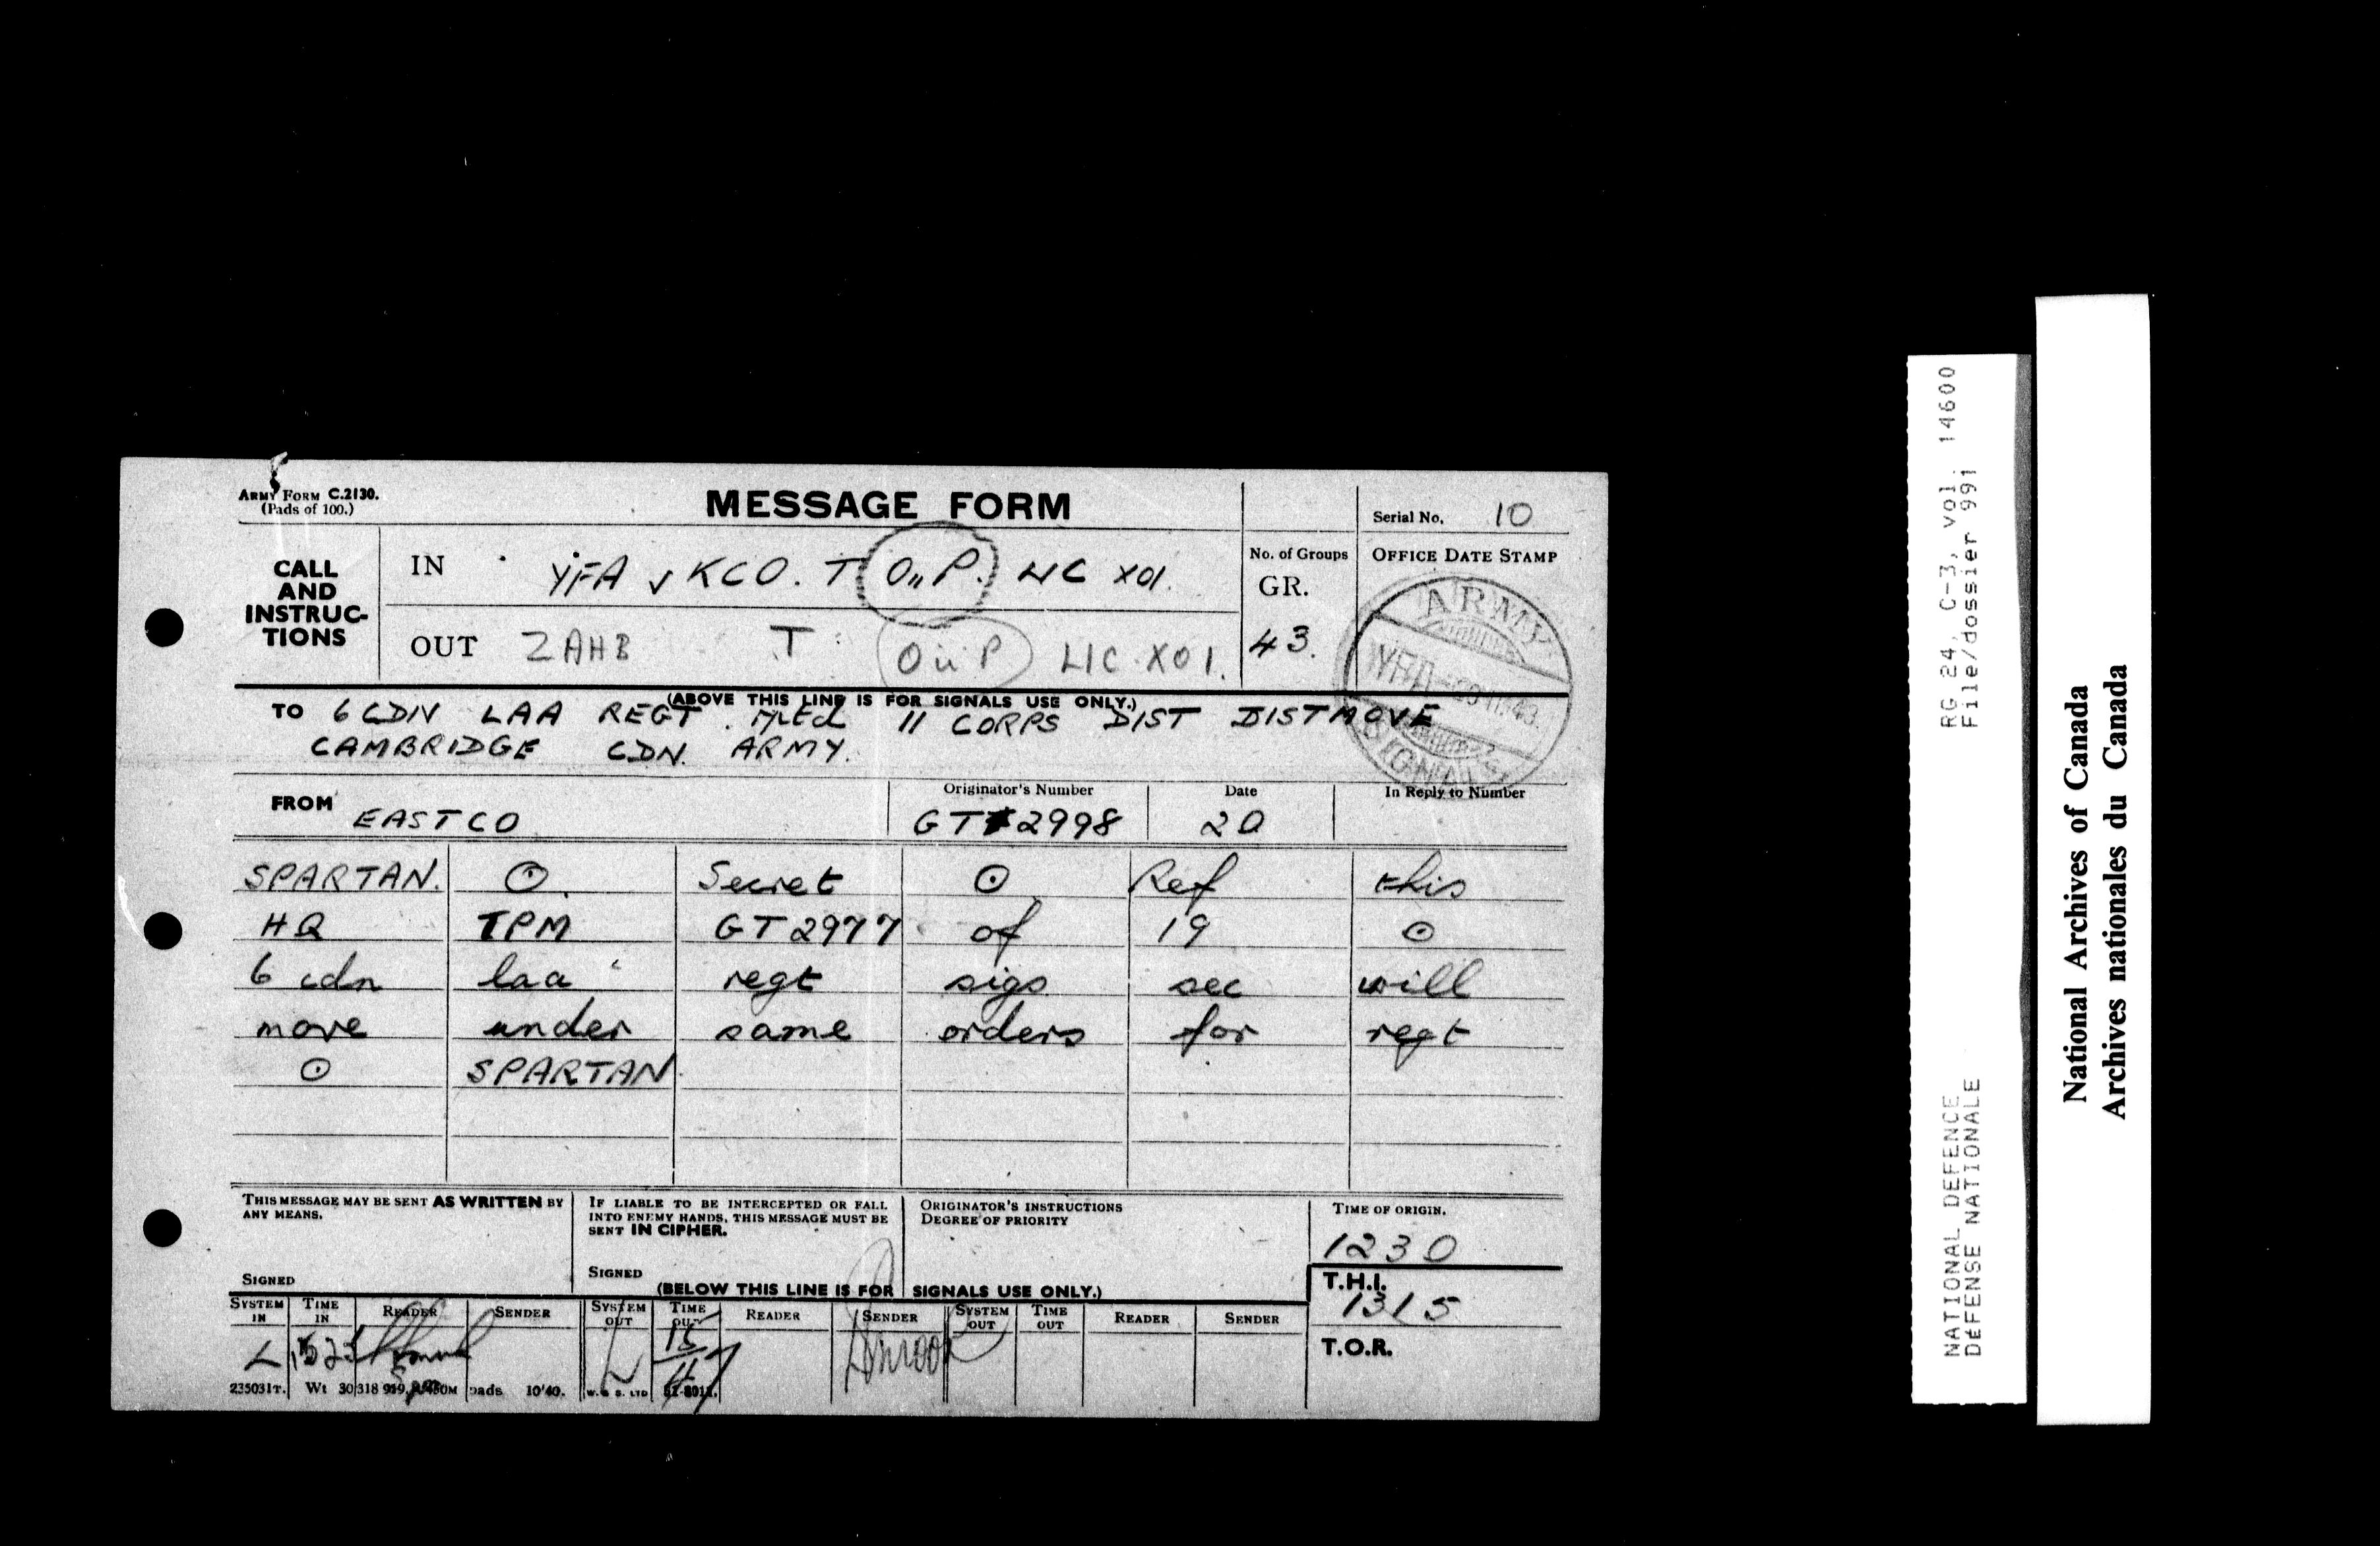 ARMY FORM C.2130.
(Pads of 100.)
MESSAGE FORM
Serial No. 10
CALL
AND
INSTRUC-
TIONS
IN YFA v KCO. T OuP. LIC X01.
No. of Groups
GR.
43.
OFFICE DATE STAMP
ARMY
OUT ZAHB T OuP LIC X01.
(ABOVE THIS LINE IS FOR SIGNALS USE ONLY.)
TO 6 CDN LAA REGT. 11 CORPS DIST DISTMOVE
CAMBRIDGE CDN. ARMY.
FROM EASTCO
Originator's Number
GT 2998
Date
20
In Reply to Number
SPARTAN. ⊙ Secret ⊙ Ref this
HQ TPM GT 2977 of 19 ⊙
6 cdn laa regt sigs sec will
move under same orders for regt
⊙ SPARTAN
THIS MESSAGE MAY BE SENT AS WRITTEN BY
ANY MEANS.
SIGNED
IF LIABLE TO BE INTERCEPTED OR FALL
INTO ENEMY HANDS, THIS MESSAGE MUST BE
SENT IN CIPHER.
SIGNED
ORIGINATOR'S INSTRUCTIONS
DEGREE OF PRIORITY
TIME OF ORIGIN.
1230
(BELOW THIS LINE IS FOR SIGNALS USE ONLY.)
T.H.I.
1315
T.O.R.
SYSTEM IN TIME IN READER SENDER SYSTEM OUT TIME OUT READER SENDER SYSTEM OUT TIME OUT READER SENDER
235031T. Wt 30318 pads 10/40. W. & S. LTD
RG 24, C-3, vol. 14600
File/dossier 991
NATIONAL DEFENCE
DÉFENSE NATIONALE
National Archives of Canada
Archives nationales du Canada